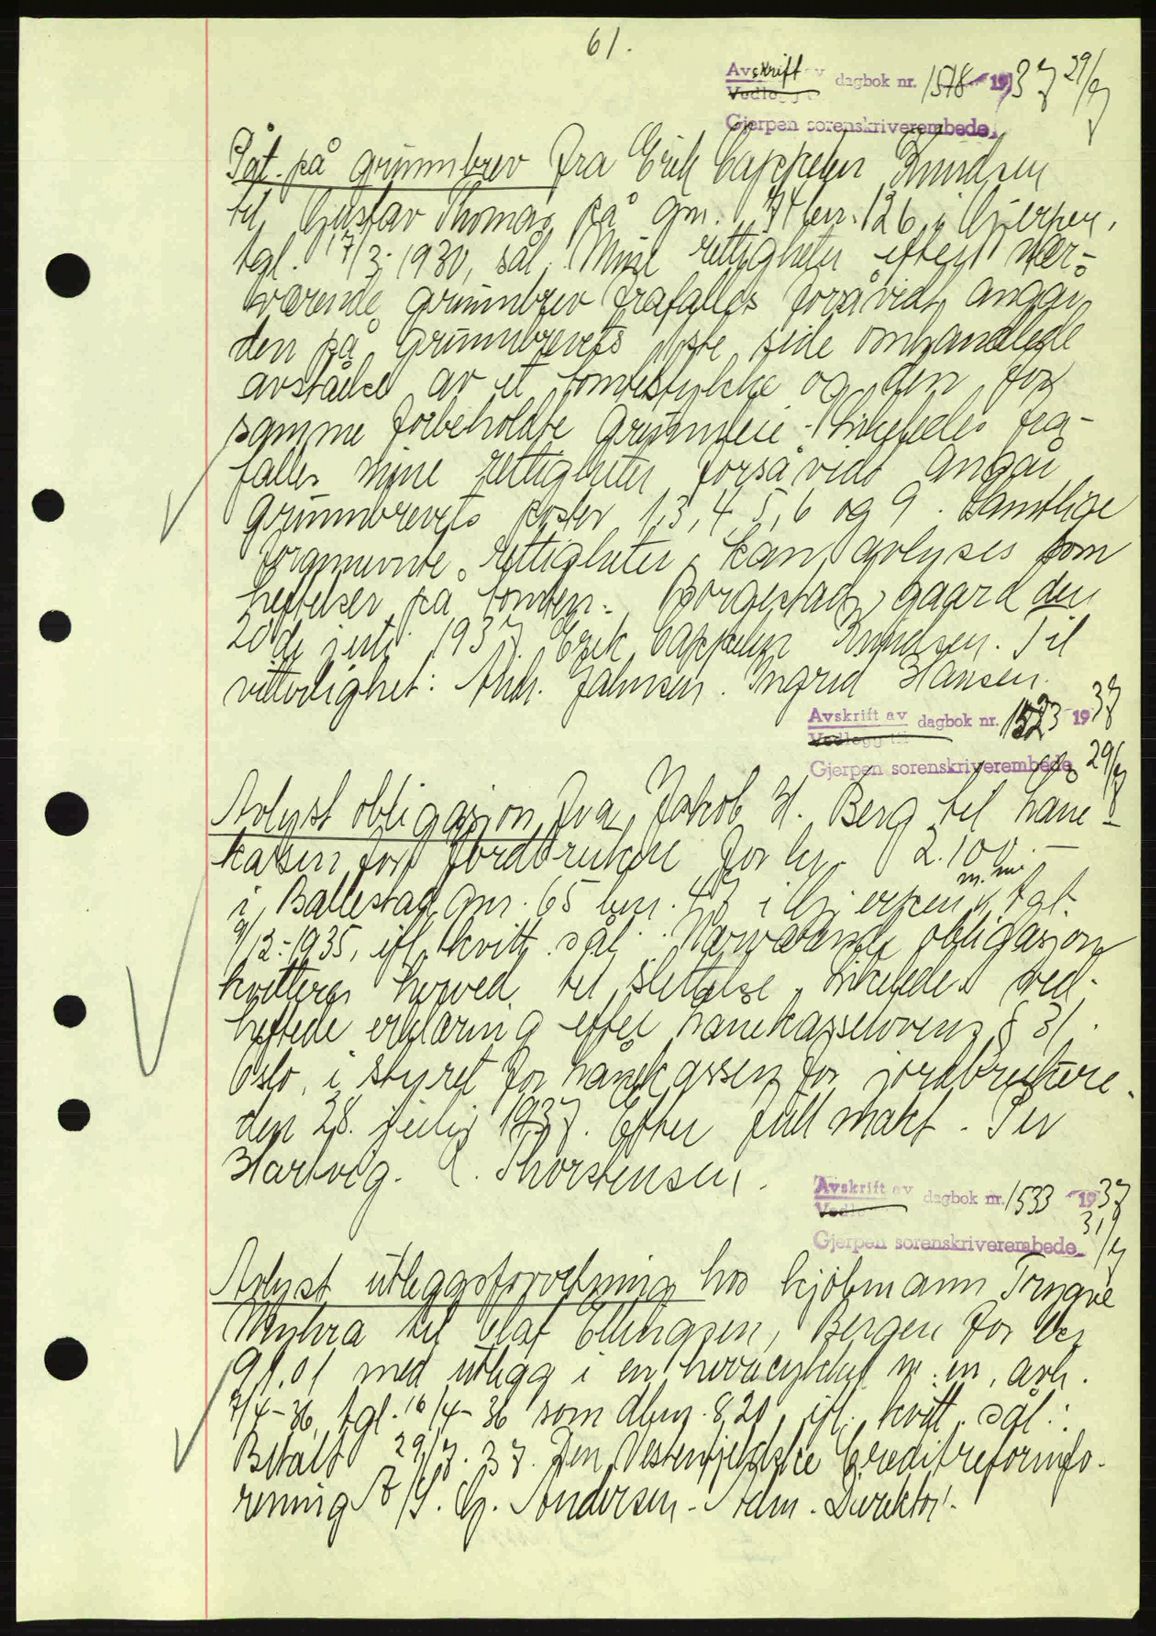 61.
Avskrift av dagbok nr. 1518 1937 29/7
Vedlegg
Gjerpen sorenskriverembede
Påt. på grunnbrev fra Erik Cappelen Knudsen
til Gustav Thomas på gnr. bnr. 126 i Gjerpen,
tgl. 17/3-1930, sål. Mine rettigheter efter nær-
værende grunnbrev frafalles forsåvidt angår
den på grunnbrevets siste side omhandlede
avståelse av et tomtestykke og den for
samme forbeholdte grunnleie. Likeledes fra-
falles mine rettigheter forsåvidt angår
Grunnbrevets poster 1, 3, 4, 5, 6 og 9. Samtlige
forannevnte rettigheter kan avlyses som
heftelser på tomten. Borgestad gaard den
20de juli 1937. Erik Cappelen Knudsen. Til
vitterlighet: Johnsen. Ingrid Hansen.
Avskrift av dagbok nr. 1523 1937
Vedlegg til
Gjerpen sorenskriverembede 29/7
Avlyst obligasjon fra Jakob H. Berg til Låne-
kassen for Jordbrukere for kr. 2.100.-
i Ballestad gnr. 65 bnr. 43 i Gjerpen m. m. tgl.
9/2-1935, ifl. kvitt. sål.: Nærværende obligasjon
kvitteres herved til slettelse, likeledes ved-
heftede erklæring efter Lånekasselovens § 31.
Oslo, i styret for Lånekassen for jordbrukere
den 28. juli 1937. Efter fullmakt. Per
Hartvig. Thorstensen.
Avskrift av dagbok nr. 1533 1937
Vedlegg
Gjerpen sorenskriverembede 31/7
Avlyst utleggsforretning hos kjøbmann Trygve
Myhra til Olaf Ellingsen, Bergen for kr.
91.01 med utlegg i en m. m., avh.
7/4-36, tgl. 16/4-36 som dbnr. 820, ifl. kvitt. sål.:
Betalt 29/7.37. Den Vestenfjeldske Creditreformfo-
rening A/S. G. Andersen. Adm. Direktør.